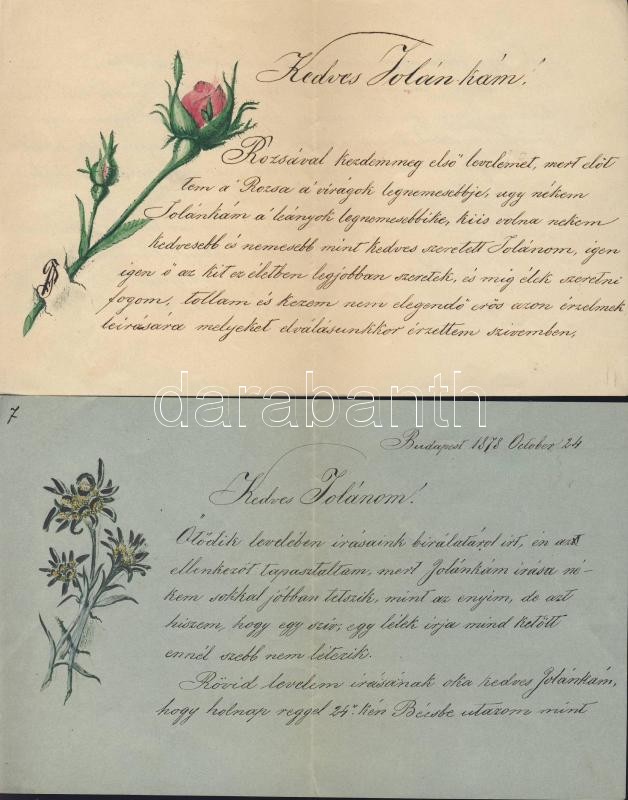 Kedves Jolánkám!
Rozsával kezdemmeg első levelemet, mert előt
tem á Rozsa á virágok legnemesebbje, ugy nékem
Jolánkám á leányok legnemesebbike, kiis volna nekem
kedvesebb és nemesebb mint kedves szeretett Jolánom, igen
igen ő az kit ez életben legjobban szeretek, és mig élek szeretni
fogom, tollam és kezem nem elegendő erös azon érzelmek
leirására melyeket elválásunkkor érzettem szivemben,
darabanth
7
Budapest 1878 October 24
Kedves Jolánom!
Ötödik levelében irásaink birálatárol irt, én azt
ellenkezöt tapasztaltam, mert Jolánkám irása né-
kem sokkal jobban tetszik, mint az enyim, de azt
hiszem, hogy egy sziv; egy lélek irja mind ketött
ennél szebb nem létezik.
Rövid levelem irásának oka kedves Jolánkám,
hogy holnap reggel 24. kén Bécsbe utazom mint